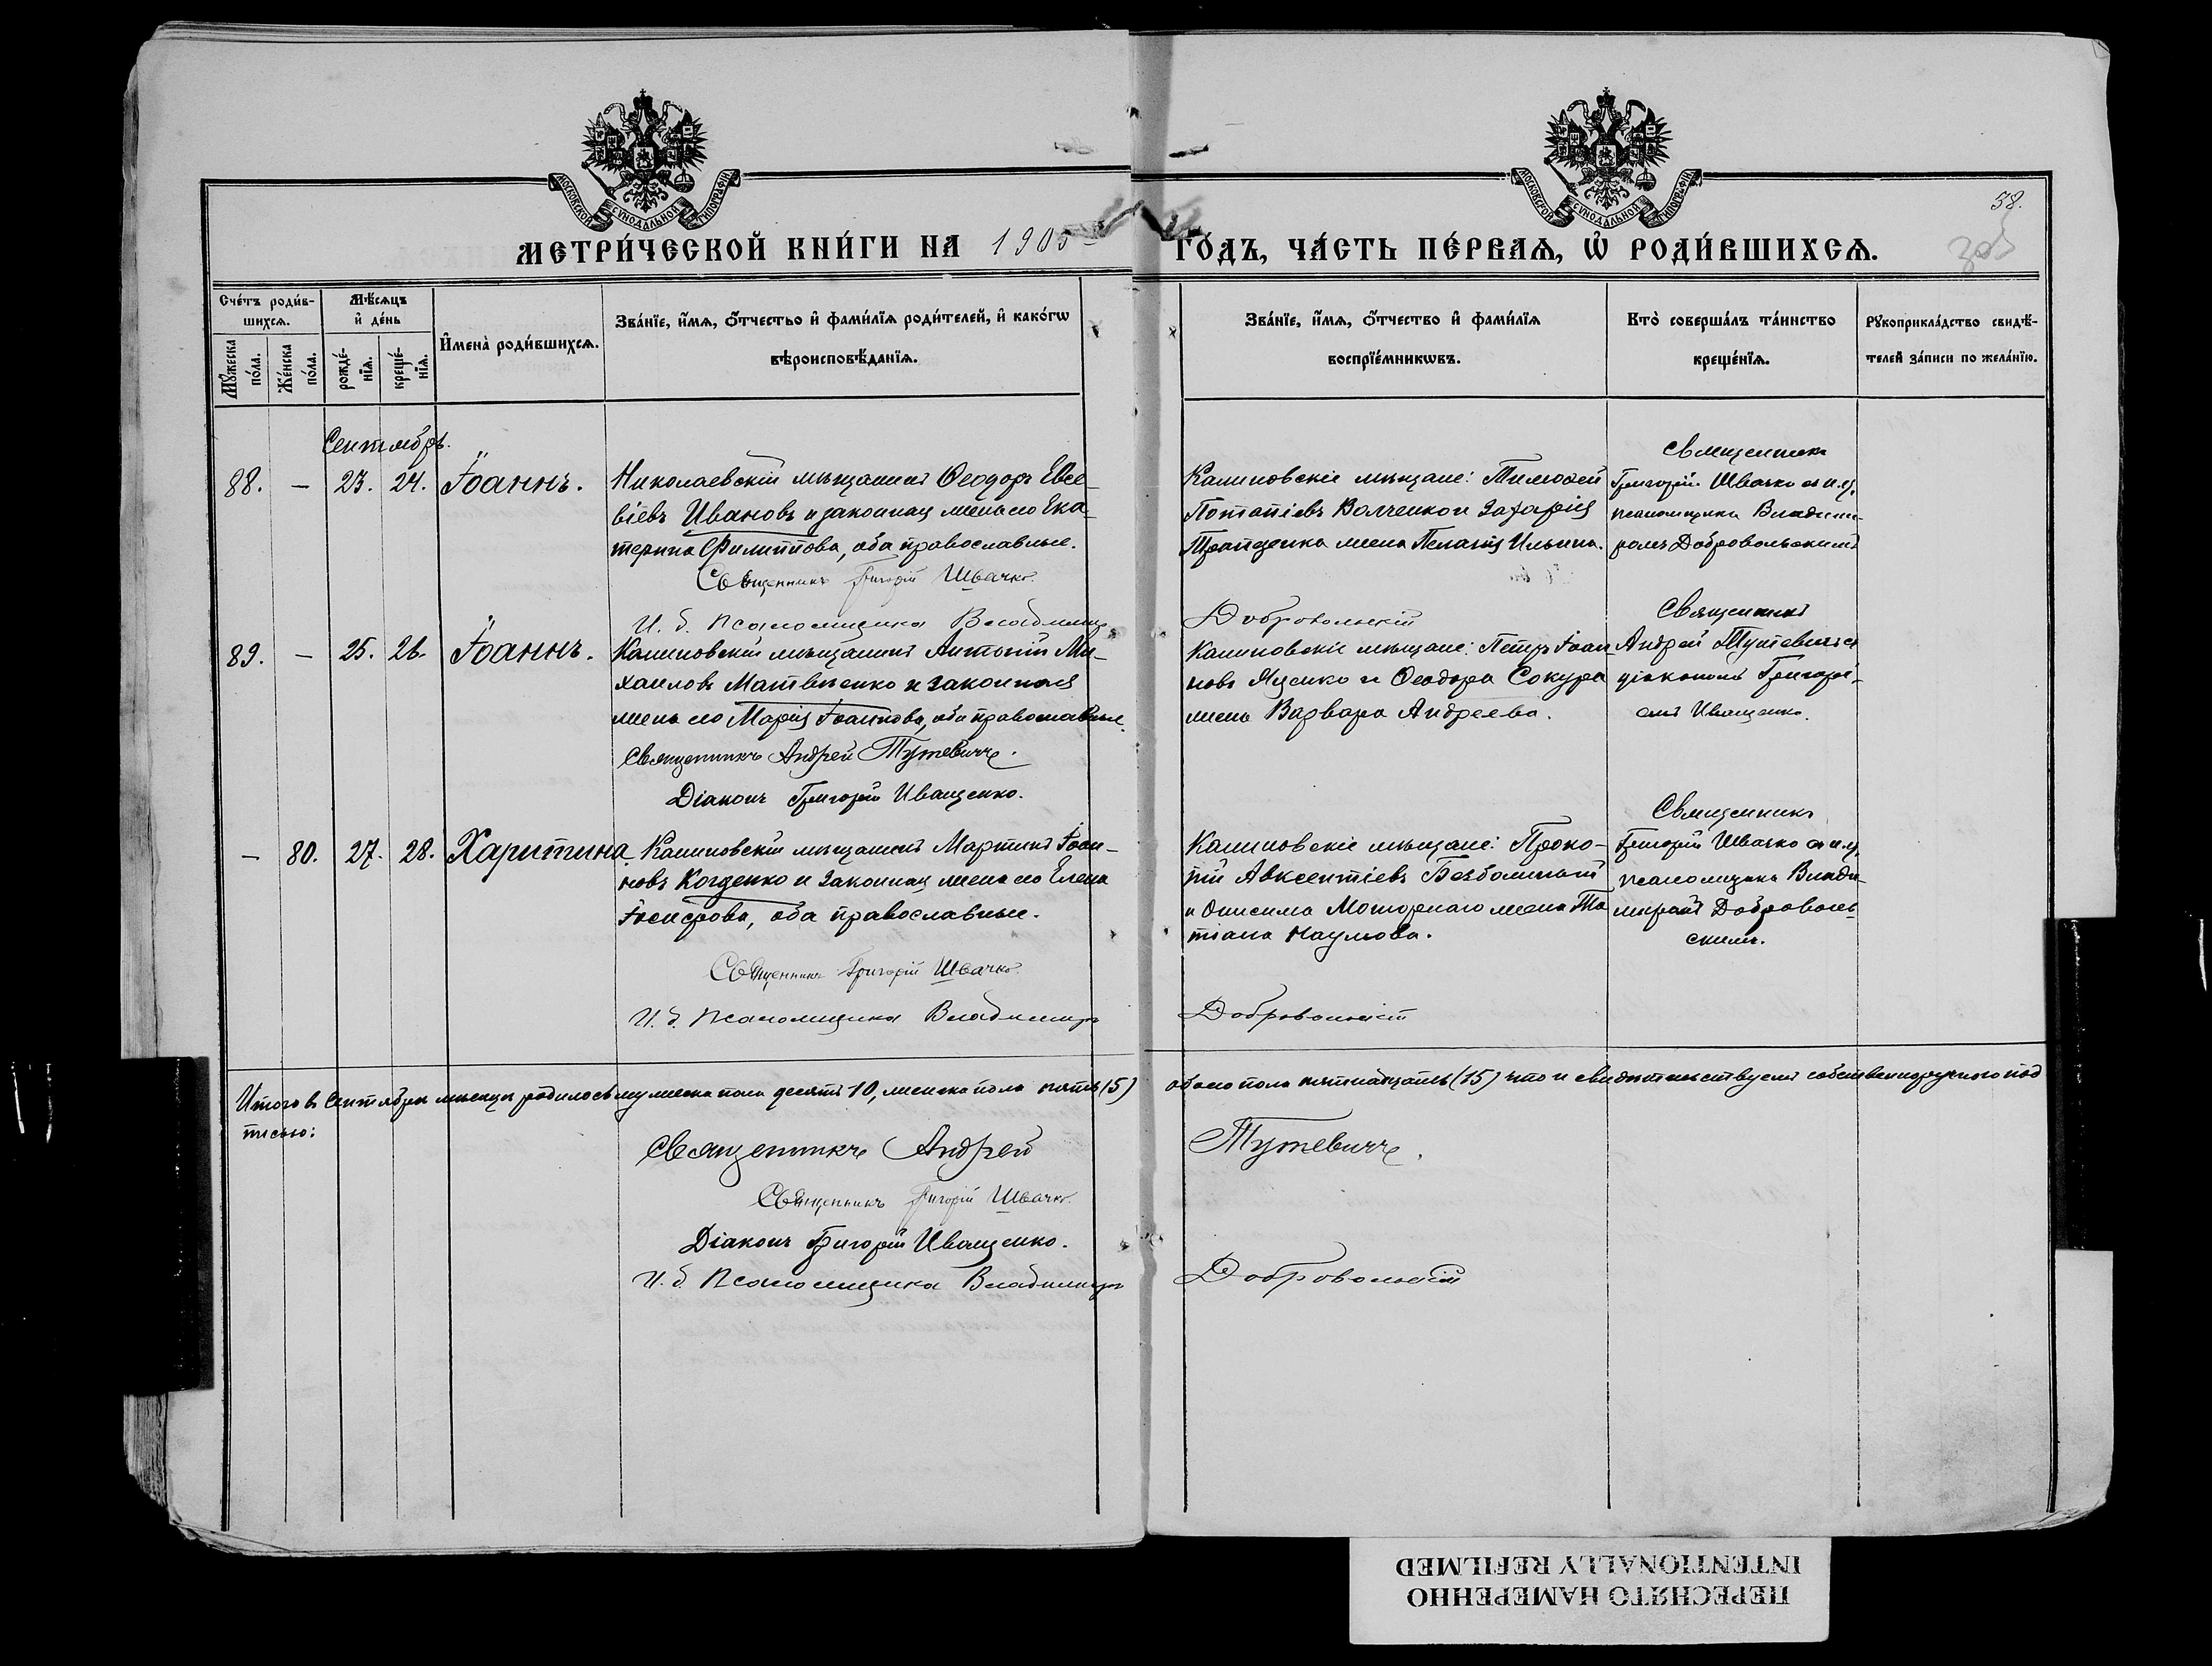 МОСКОВСКОЙ СѴНОДАЛЬНОЙ ТИПОГРАФІИ
МОСКОВСКОЙ СѴНОДАЛЬНОЙ ТИПОГРАФІИ
58.
МЕТРИ́ЧЕСКОЙ КНИ́ГИ НА 1905
ГО́ДЪ, ЧА́СТЬ ПЕ́РВАѦ, Ѡ҆ РОДИ́ВШИХСѦ.
Сче́тъ роди́в-
шихсѧ.
Мѣ́сѧцъ
и҆ де́нь
И҆мена̀ роди́вшихсѧ.
Зва́нїе, и҆́мѧ, ѻ҆́тчестьо и҆ фами́лїѧ роди́телей, и҆ како́гѡ
вѣроисповѣ́данїѧ.
Зва́нїе, и҆́мѧ, ѻ҆́тчество и҆ фами́лїѧ
воспрїе́мникѡвъ.
Кто̀ соверша́лъ та́инство
креще́нїѧ.
Рꙋкоприкла́дство свидѣ́-
телей за́писи по жела́нїю.
Мꙋ́жеска
по́ла.
Же́нска
по́ла.
рожде́-
нїѧ.
креще́-
нїѧ.
Сентябрь.
88. — 23. 24. Іоаннъ.
Николаевскій мѣщанинъ Ѳеодоръ Евсе-
віевъ Ивановъ и законная жена его Ека-
терина Филиппова, оба православные.
Священникъ Григорій Швачко.
И. д. Псаломщика Владимиръ
Калиновскіе мѣщане: Тимоѳей
Потапіевъ Волченко и Захарія
жена Пелагія Ильина.
Добровольскій
Священникъ
Григорій Швачко съ и.д.
псаломщика Владими-
ромъ Добровольскимъ
89. — 25. 26. Іоаннъ.
Калиновскій мѣщанинъ Антоній Ми-
хаиловъ Матвіенко и законная
жена его Марія Іоаннова, оба православные.
Священникъ Андрей Тутевичъ.
Діаконъ Григорій Иващенко.
Калиновскіе мѣщане: Петръ Іоан-
новъ Яценко и Ѳеодора Сокура
жена Варвара Андреева.
Священникъ
Андрей Тутевичъ съ
діакономъ Григорі-
емъ Иващенко.
— 80. 27. 28. Харитина
Калиновскій мѣщанинъ Мартинъ Іоан-
новъ Когденко и законная жена его Елена
оба православные.
Священникъ Григорій Швачко.
И. д. Псаломщика Владимиръ
Калиновскіе мѣщане: Проко-
пій Авксентіевъ
и Онисима Моторнаго жена Та
тіана Наумова.
Добровольскій
Священникъ
Григорій Швачко съ и.д.
псаломщика Влади-
миромъ Доброволь-
скимъ.
Итого въ Сентябрѣ мѣсяцѣ родилось мужеска пола десять 10, женска пола пять (5)
обоего пола пятнадцать (15) что и свидѣтельствуемъ собственноручного под
писью:
Священникъ Андрей Тутевичъ.
Священникъ Григорій Швачко.
Діаконъ Григорій Иващенко.
И. д. Псаломщика Владимиръ Добровольскій
ПЕРЕСНЯТО НАМЕРЕННО
INTENTIONALLY REFILMED